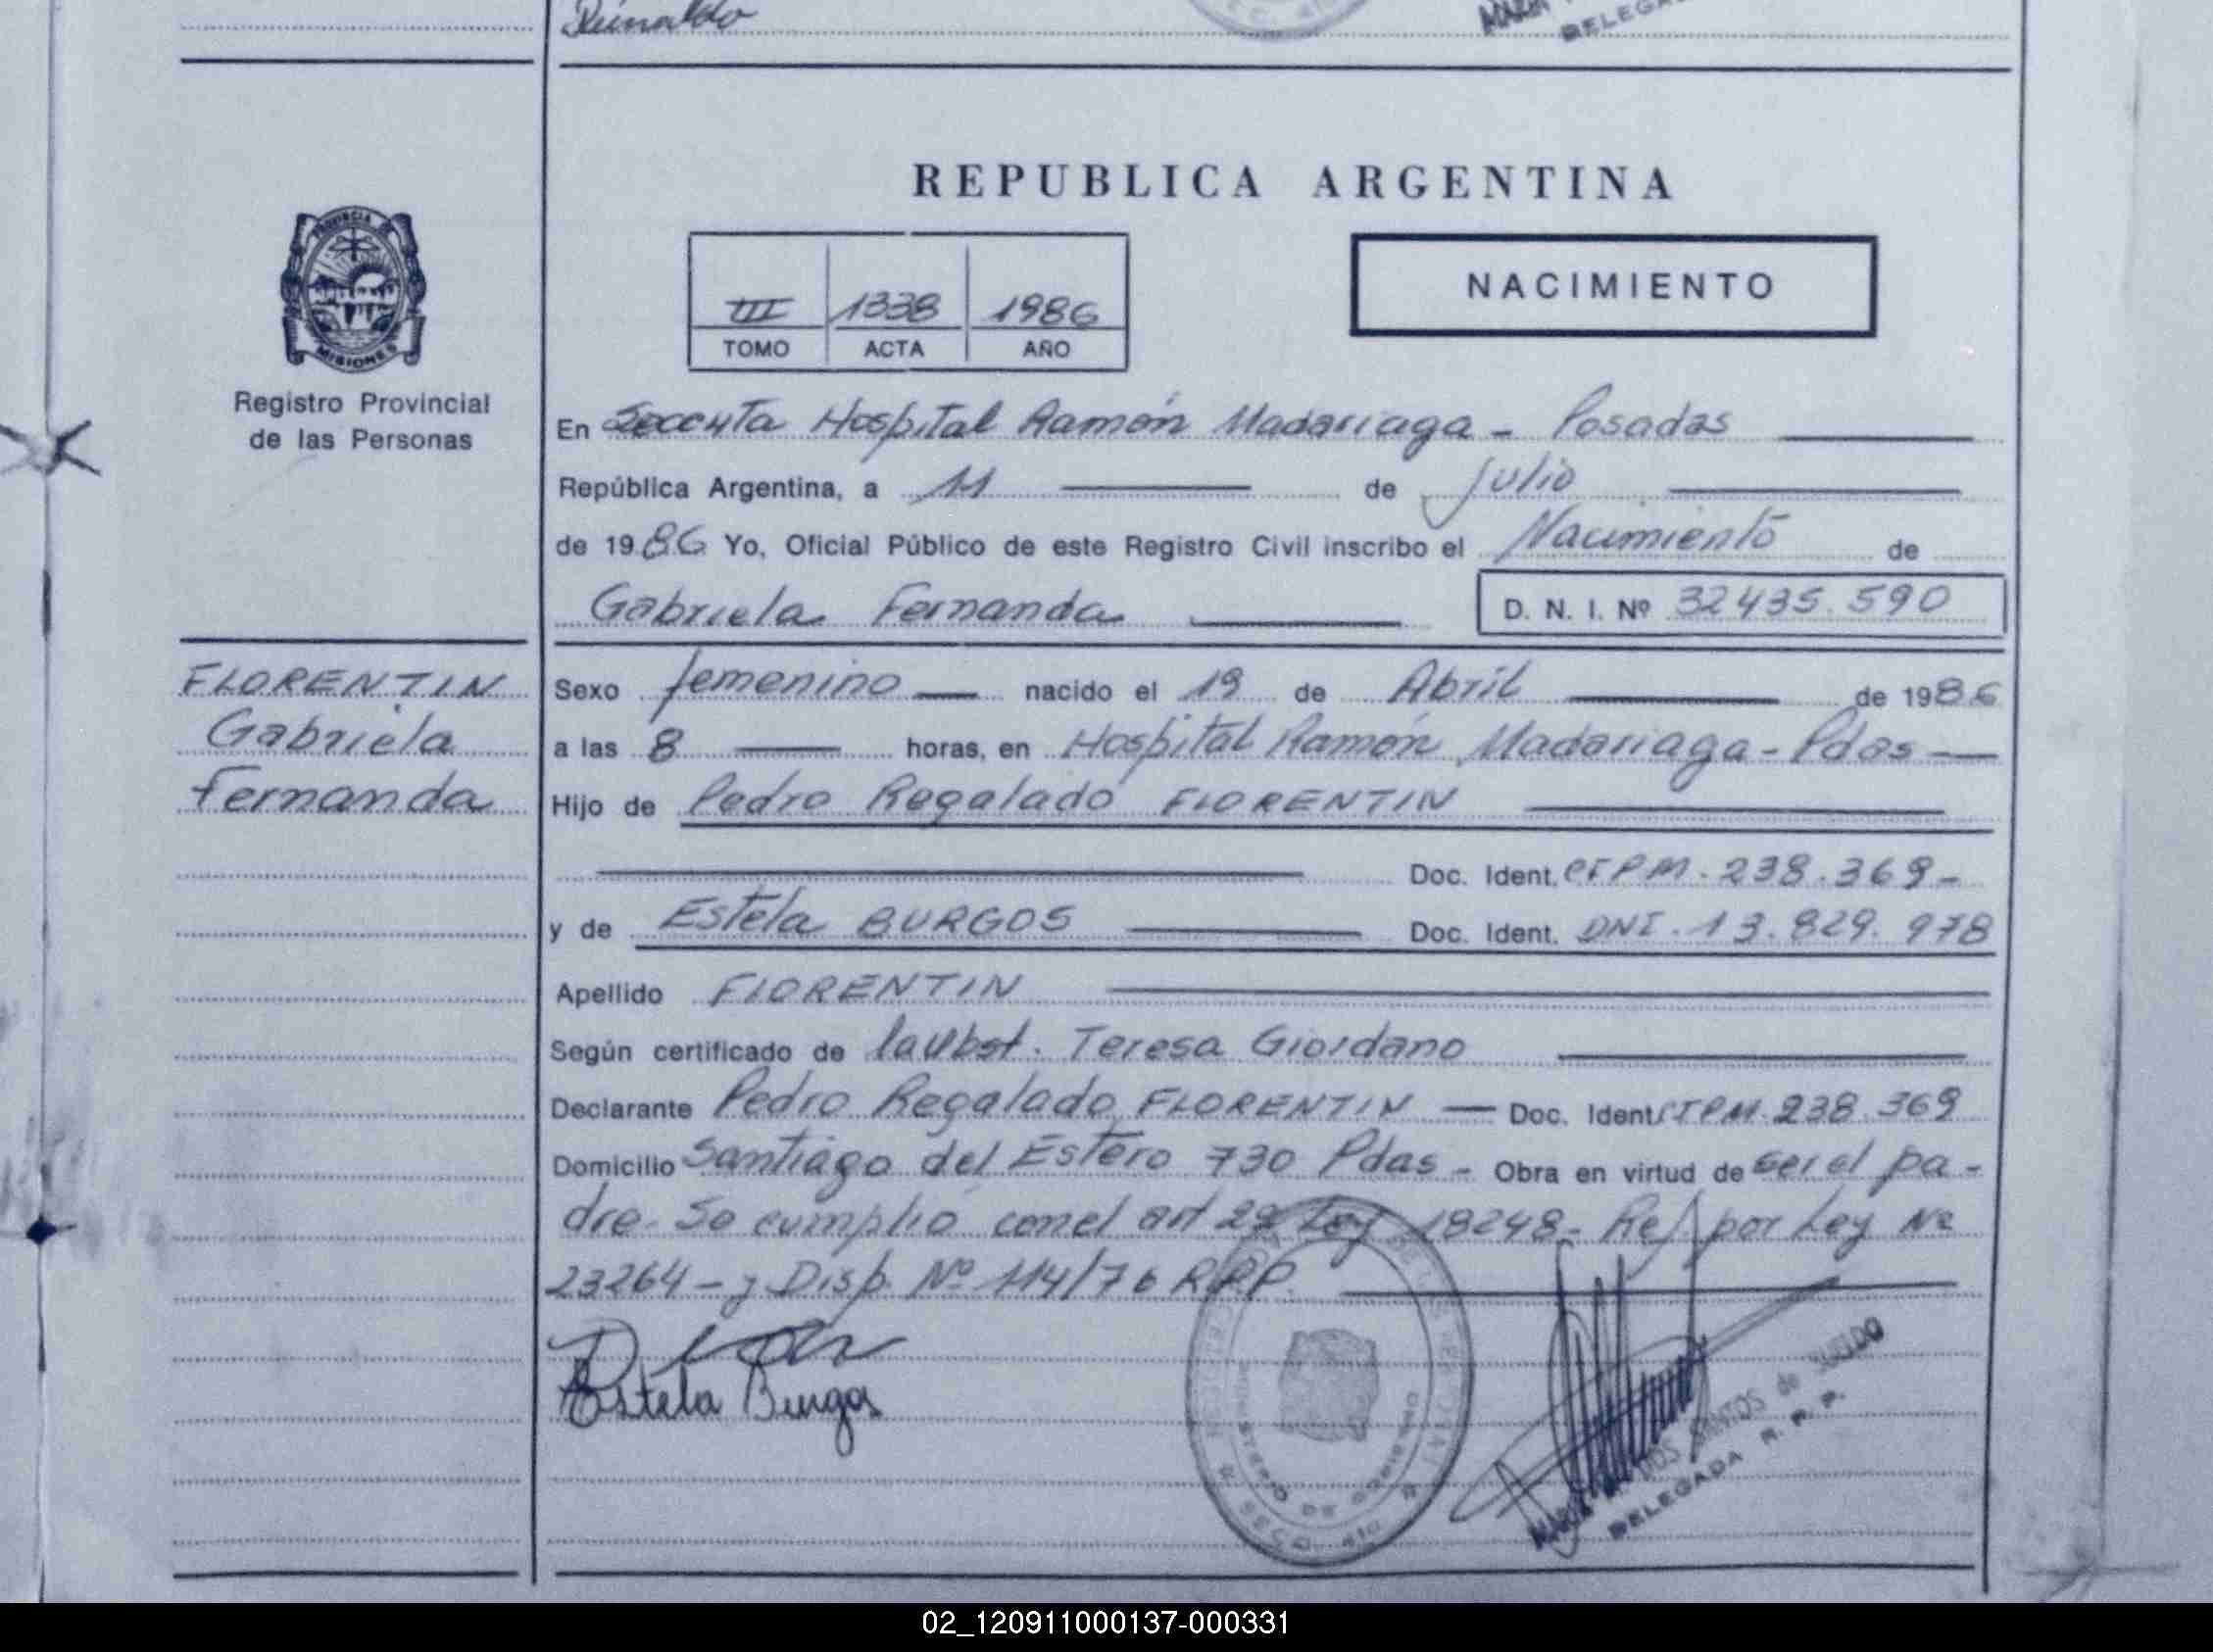 Reinaldo
REPUBLICA ARGENTINA
III 1338 1986
TOMO ACTA AÑO
NACIMIENTO
PROVINCIA DE
MISIONES
Registro Provincial
de las Personas
En Hospital Ramón Madariaga - Posadas
República Argentina, a 11 de julio
de 1986 Yo, Oficial Público de este Registro Civil inscribo el Nacimiento de
Gabriela Fernanda D. N. I. Nº 32435.590
FLORENTIN
Gabriela
Fernanda
Sexo femenino nacido el 19 de Abril de 1986
a las 8 horas, en Hospital Ramón Madariaga - Pdas
Hijo de Pedro Regalado FLORENTIN
Doc. Ident. CIPM. 238.369-
y de Estela BURGOS Doc. Ident. DNI. 13.829.978
Apellido FLORENTIN
Según certificado de la Obst. Teresa Giordano
Declarante Pedro Regalado FLORENTIN Doc. Ident. CIPM. 238.369
Domicilio Santiago del Estero 730 Pdas - Obra en virtud de ser el pa-
dre. Se cumplió con el art 2º Ley 18248- Ref. por Ley Nº
23264 - y Disp. Nº 114/76 RPP.
Estela Burgos
DOS SANTOS de
DELEGADA R. P. P.
02_120911000137-000331